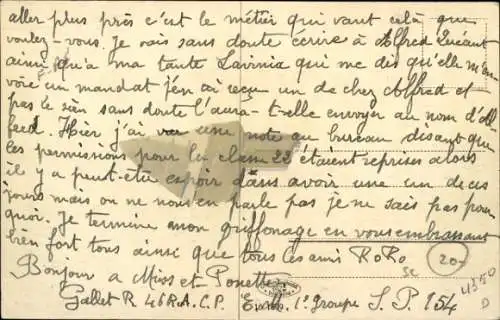 aller plus près c'est le métier qui vaut celà que
voulez-vous. Je vais sans doute écrire à Alfred Quéant
ainsi qu'a ma tante Lavinia qui me dis qu'elle m'en
voie un mandat j'en ai reçu un de chez Alfred et
pas le sien sans doute l'aura-t-elle envoyer au nom d'Al
fred. Hier j'ai vu une note au bureau disant que
les permissions pour la classe 22 étaient reprises alors
il y a peut-etre espoir d'ans avoir une un de ces
jours mais on ne nous en parle pas je ne sais pas pour
quoi. Je termine mon griffonage en vous embrassant
bien fort tous ainsi que tous les amis RoRo
Bonjour a Mios et Ponette
Gallet R. 46 R.A.C.P. 1e groupe S.P. 154
20
4550
D